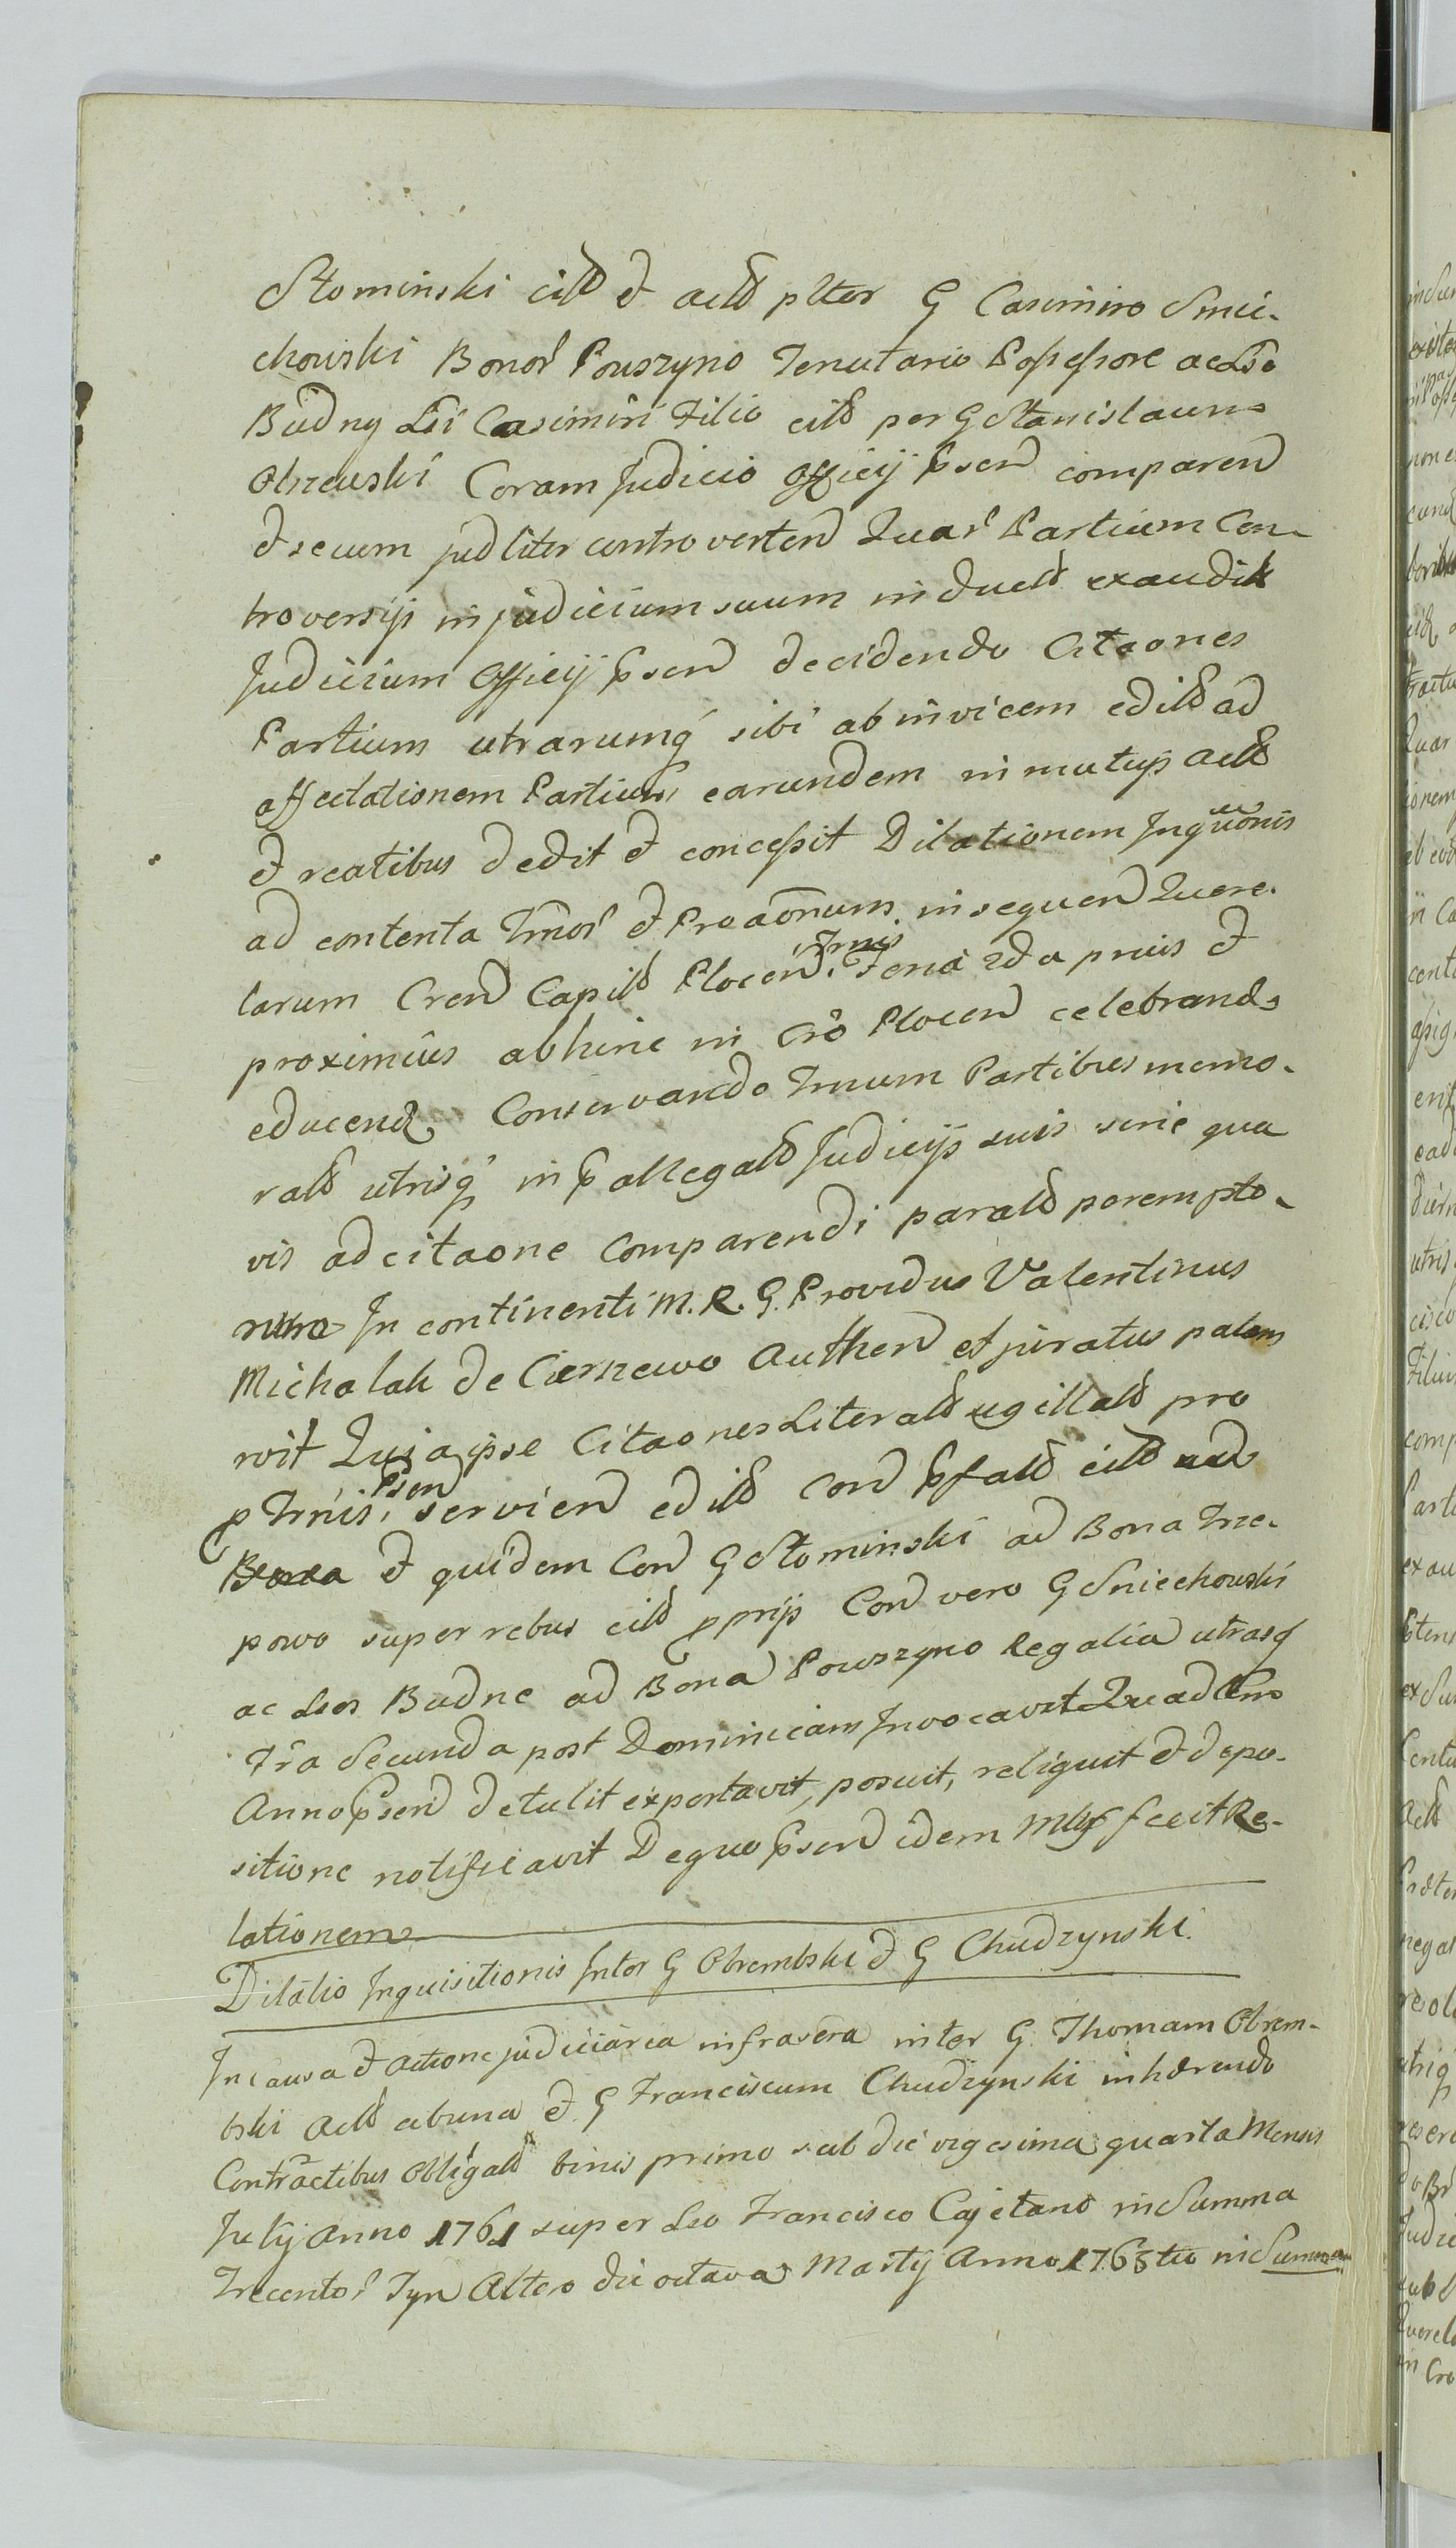 Słominski citt et actt plter G Casimiro Smie-
chowski Bonor Pouszyno Tenutario Possessore ac Lso
Budny Lsi Casimiri Filio citt per G Stanislaum
Olszewski Coram Judicio Officij Psend comparend
et secum judliter controvertend Quar Partium Con-
troversijs in judicium suum induett exaudit
Judicium Officij Psend decidendo Citaones
Partium utrarumq sibi ab invicem editt ad
affectationem Partium earundem in mutuis actt
et reatibus dedit et concessit Dilationem Inqnonis
ad contenta Trmor et Proaonum in sequend Quere-
larum Crend Capitt Plocend Trmis Feria 2da prius et
proximius abhinc in Cro Plocend celebrand
educend Conservando Trnum Partibus memo-
ratt utrisq in pallegatt Judicijs suis sine qua
vis adcitaone Comparendi paratt perempto-
rium In continenti M. R. G. Providus Valentinus
Michalak de Cierszewo Authend et juratus palam
rvit Quia ipse Citaones Literatt sigillatt pro
p Trmis Psen serviend editt Cond pfatt citt
et quidem Cond G Słominski ad Bona Trze-
powo super rebus citt pprijs Cond vero G Sniechowski
ac Lsos Budne ad Bona Pouszyno Regalia utrasq
Fra Secunda post Dominicam Invocavit Quadlem
Anno Psend detulit exportavit, posuit, reliquit et depo-
sitione notificavit De quo Psend idem Mlgs fecit Re-
lationem
Dilatio Inquisitionis Inter G Obrembski et G Chudzynski.
In causa et actione judiciaria infrasera inter G Thomam Obrem-
bski actt ab una et G Franciscum Chudzynski inhærendo
Contractibus obligatt binis primo sub die vigesima quarta Mensis
Julij Anno 1761 super Lso Francisco Cajetano in Summa
Trecentor Tyn Altero die octava Martij Anno 1765to in Summa